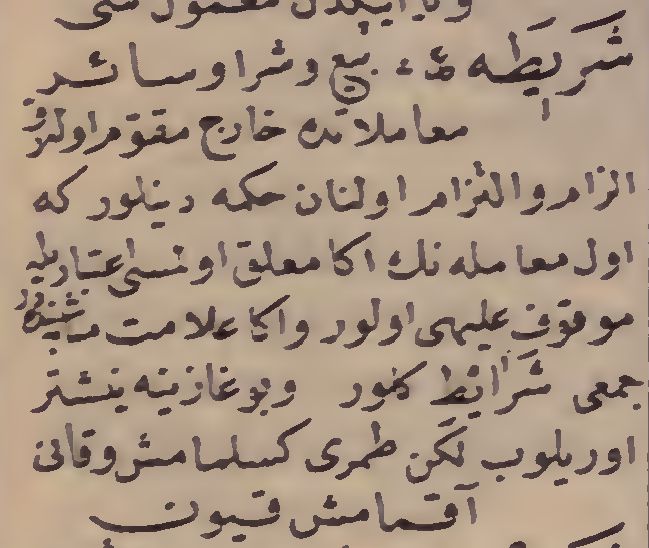 شَرِيطَه ء بيع وشرا وسائر
معاملاتده خارج مقوّم اولوب
الزام والتزام اولنان حكمه دينلور كه
اول معامله نك اكا معلق اولنسى اعتباريله
موقوف عليهى اولور واكا علامت مثابه سنده در
جمعى شَرَائِط كلور وبوغازينه نيشتر
اوريلوب لكن طمرى كسلمامش وقانى
آقمامش قيون